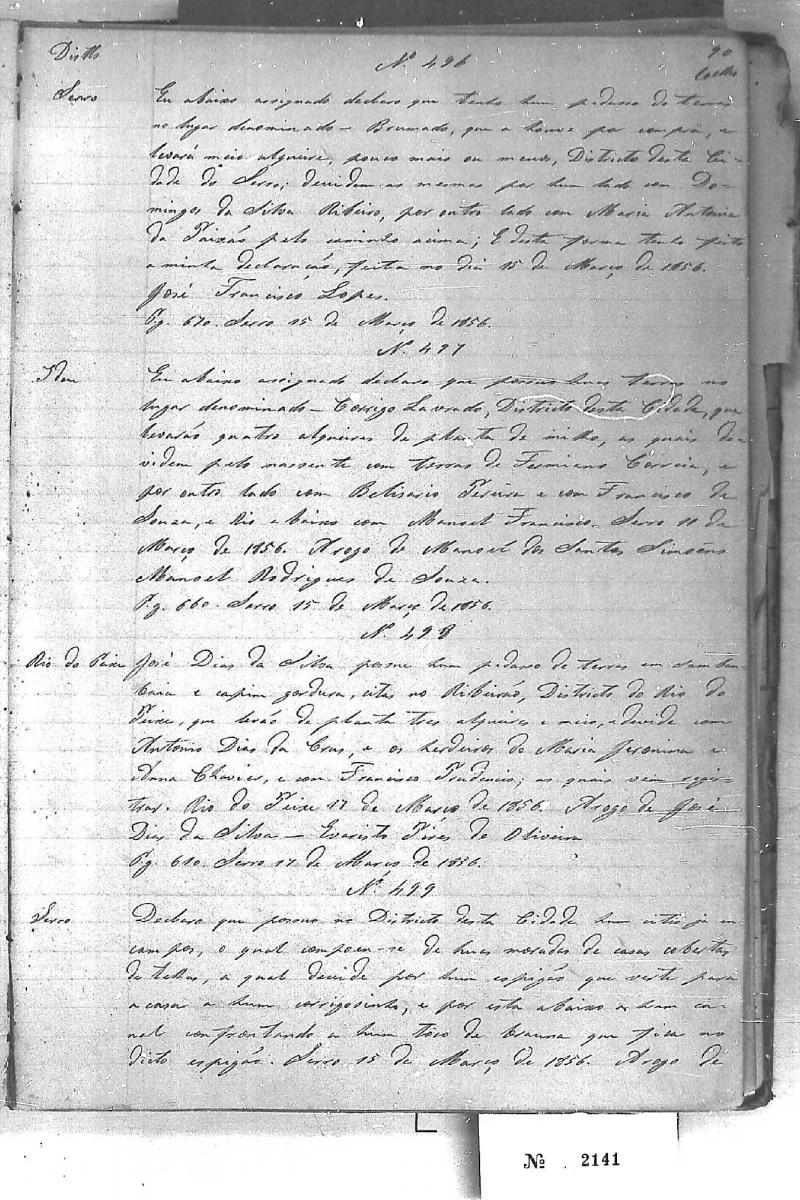 Distto
90
Nº 496
Coelho
Serro
Eu abaixo assignado declaro que tenho hum pedasso de terras
no lugar denominado - Brumado, que a houve por compra, e
levará meio alqueire, pouco mais ou menos, Districto desta Ci-
dade do Serro; devidem as mesmas por hum lado com Do-
mingos da Silva Ribeiro, por outro lado com Maria Antonia
da Paixão pelo caminho acima; E desta forma tenho feito
a minha declaração, feita no dia 15 de Março de 1856.
José Francisco Lopes.
Pg. 670. Serro 15 de Março de 1856.
Nº 497
Idem
Eu abaixo assignado declaro que possuo huas terras no
lugar denominado - Corrigo Lavrado, Districto desta Cidade, que
levarão quatro alqueires de planta de milho, as quais de-
videm pelo nassente com terras de Fermiano Correia, e
por outro lado com Belisario Pereira e com Francisco de
Souza, e Rio abaixo com Manoel Francisco. Serro 11 de
Março de 1856. Arogo de Manoel dos Santos Simoens
Manoel Rodrigues de Souza.
Pg. 660. Serro 15 de Março de 1856.
Nº 498
Rio do Peixe
José Dias da Silva possue hum pedasso de terras em samban-
baia e capim gordura, citas no Ribeirão, Districto do Rio do
Peixe, que levão de planta tres alqueires e meio, e devide com
Antonio Dias da Crus, e os herdeiros de Maria Jeronima e
Anna Chavier, e com Francisco Prudencio; as quais vem regis-
trar. Rio do Peixe 17 de Março de 1856. Arogo de José
Dias da Silva - Evaristo Pires de Oliveira
Pg. 610. Serro 17 de Março de 1856.
Nº 499
Serro
Declaro que possuo no Districto desta Cidade hum citio ja em
campos, o qual compoen-se de huas moradas de casas cobertas
de telhas, a qual devide por hum espigão que verte para
a casa a hum corrigosinho, e por este abaixo a hum ca-
nal confrontando a hum toco de brauna que fica no
dicto espigão. Serro 15 de Março de 1856. Arogo de
Nº 2141